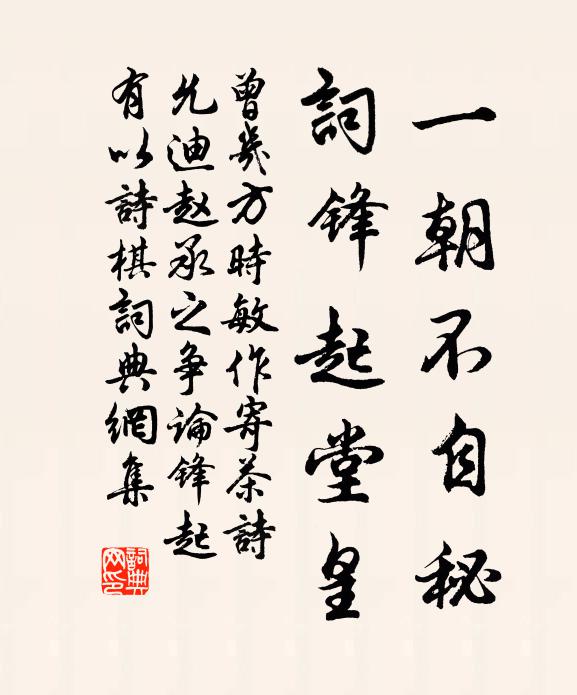 一朝不自秘
詞锋起堂皇
曾幾方時敏作寄茶詩
允迪赵承之争論锋起
有以詩棋詞典網集
詞典网印